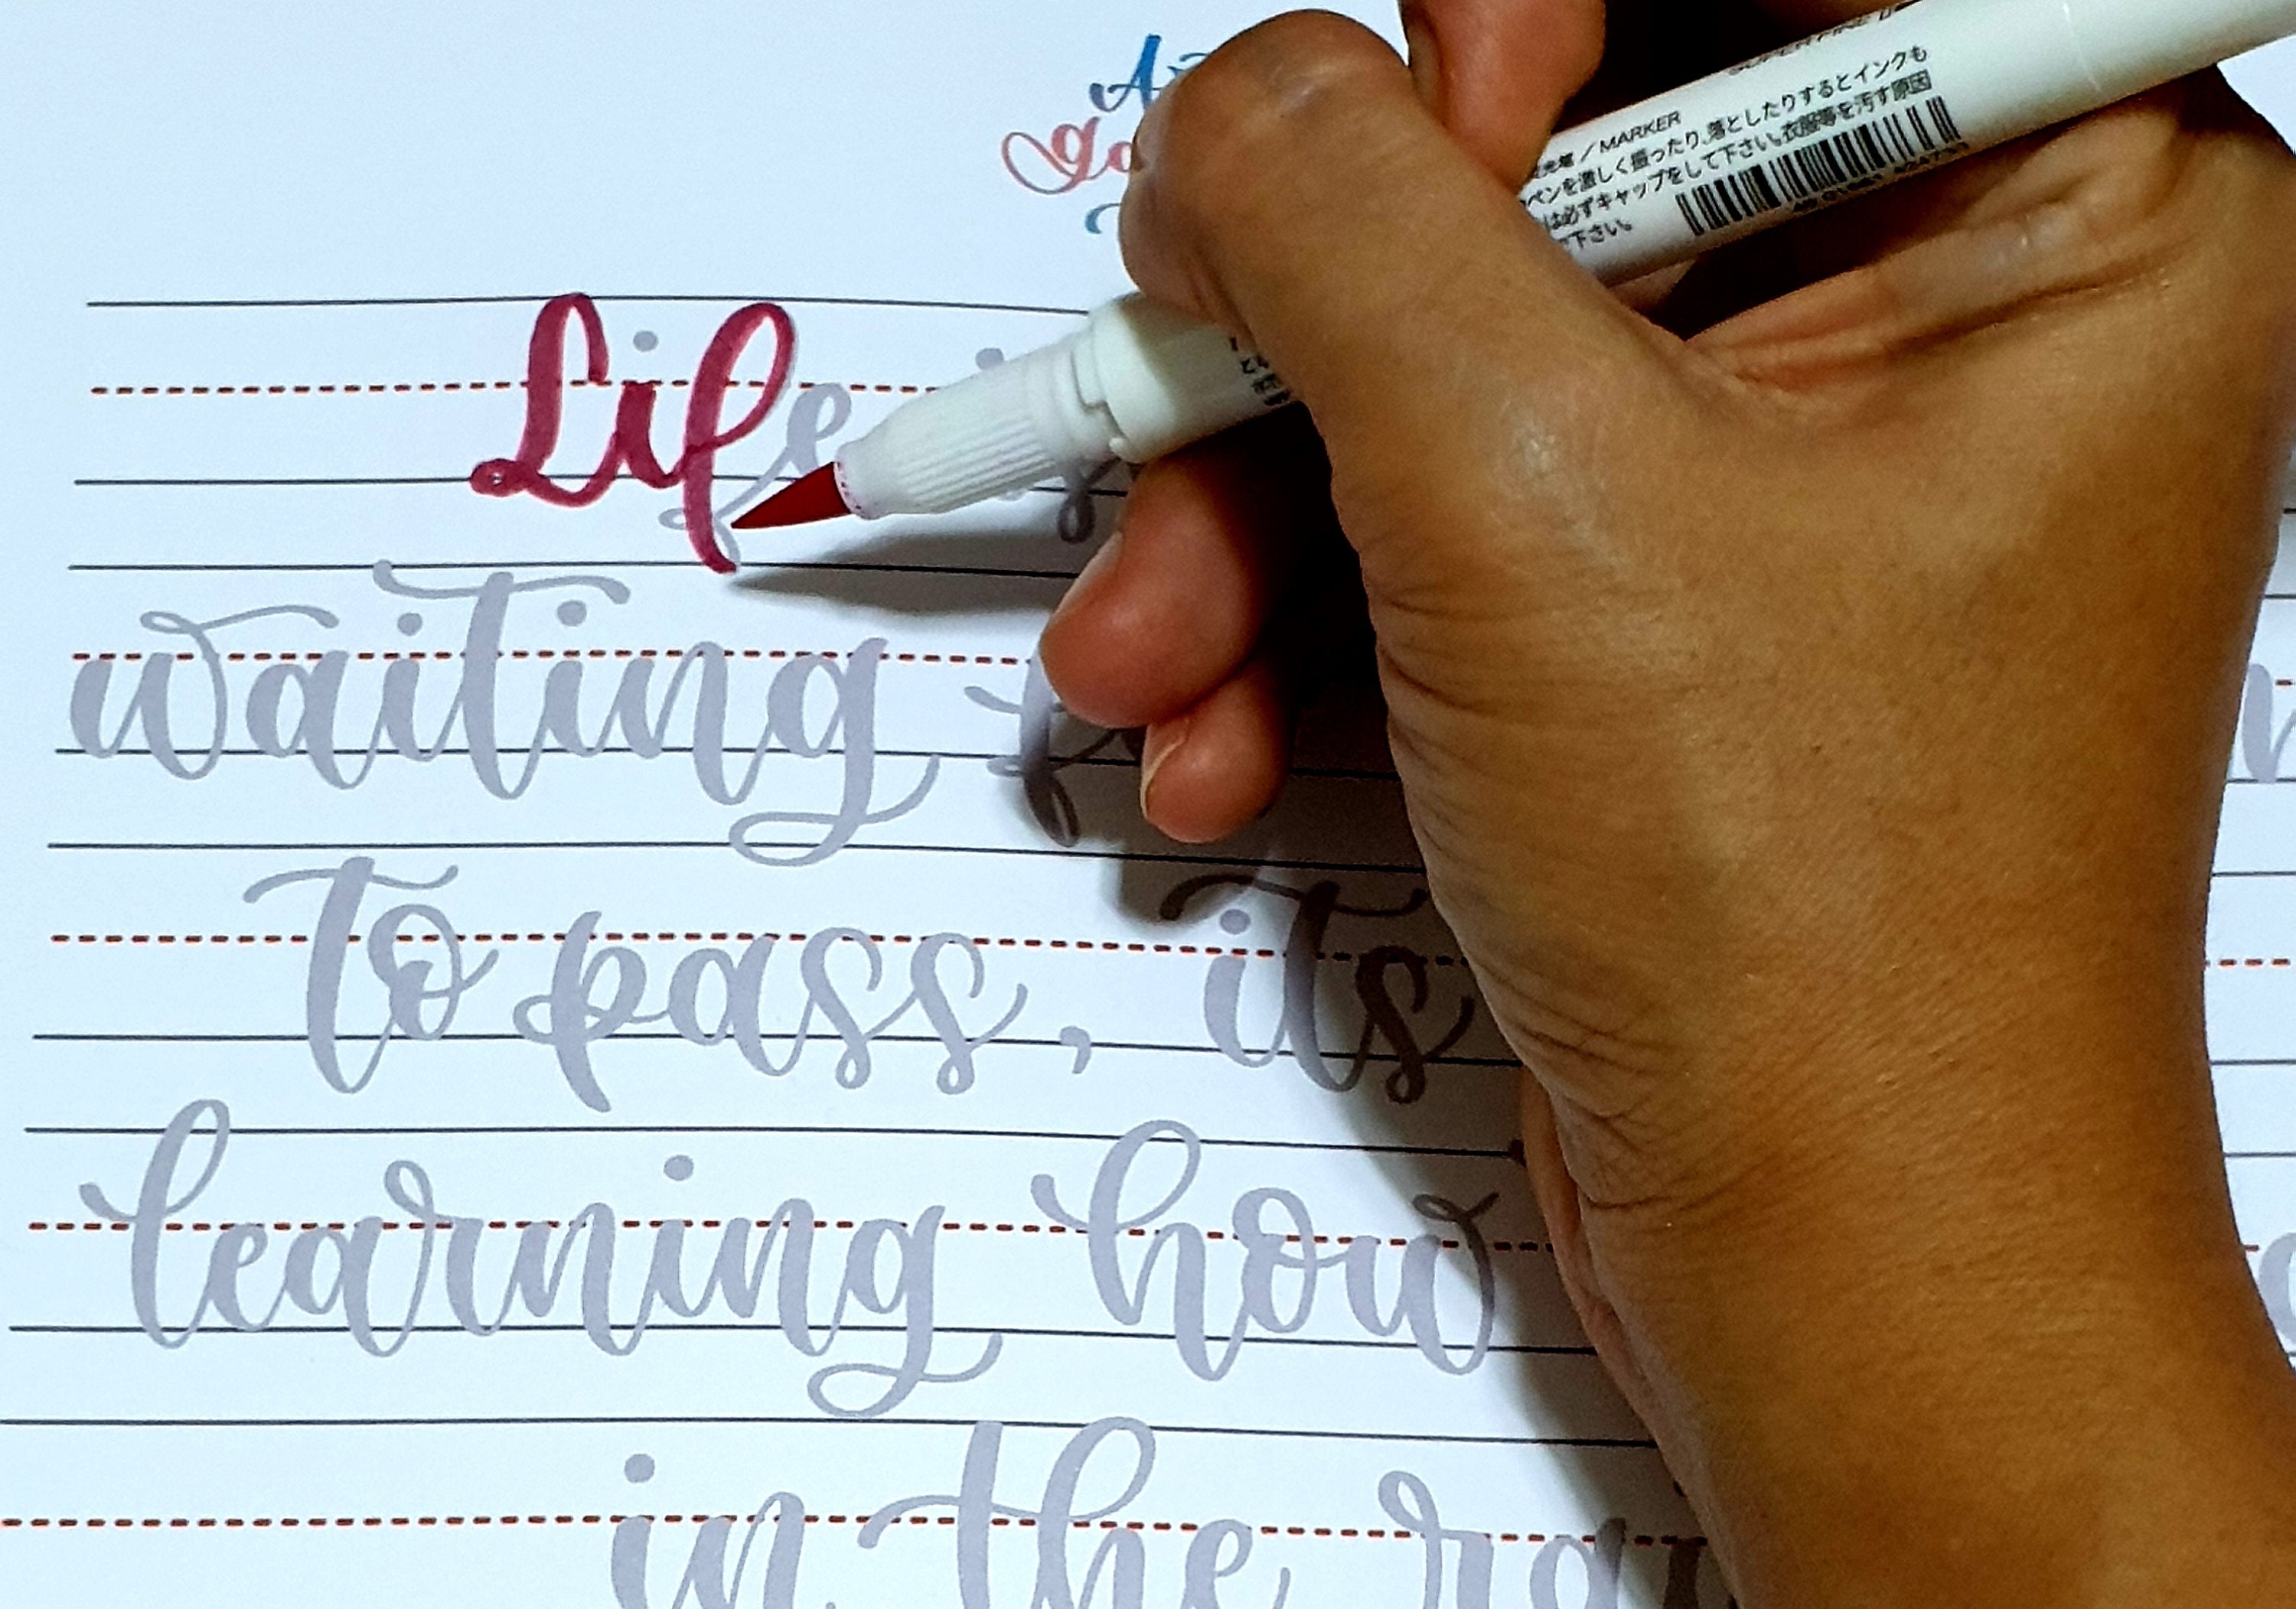 MARKER
ペンを激しく振ったり、落としたりするとインクも
は必ずキャップをして下さい。衣服等を汚す原因
下さい。
Life
waiting
to pass, its
learning how
in the